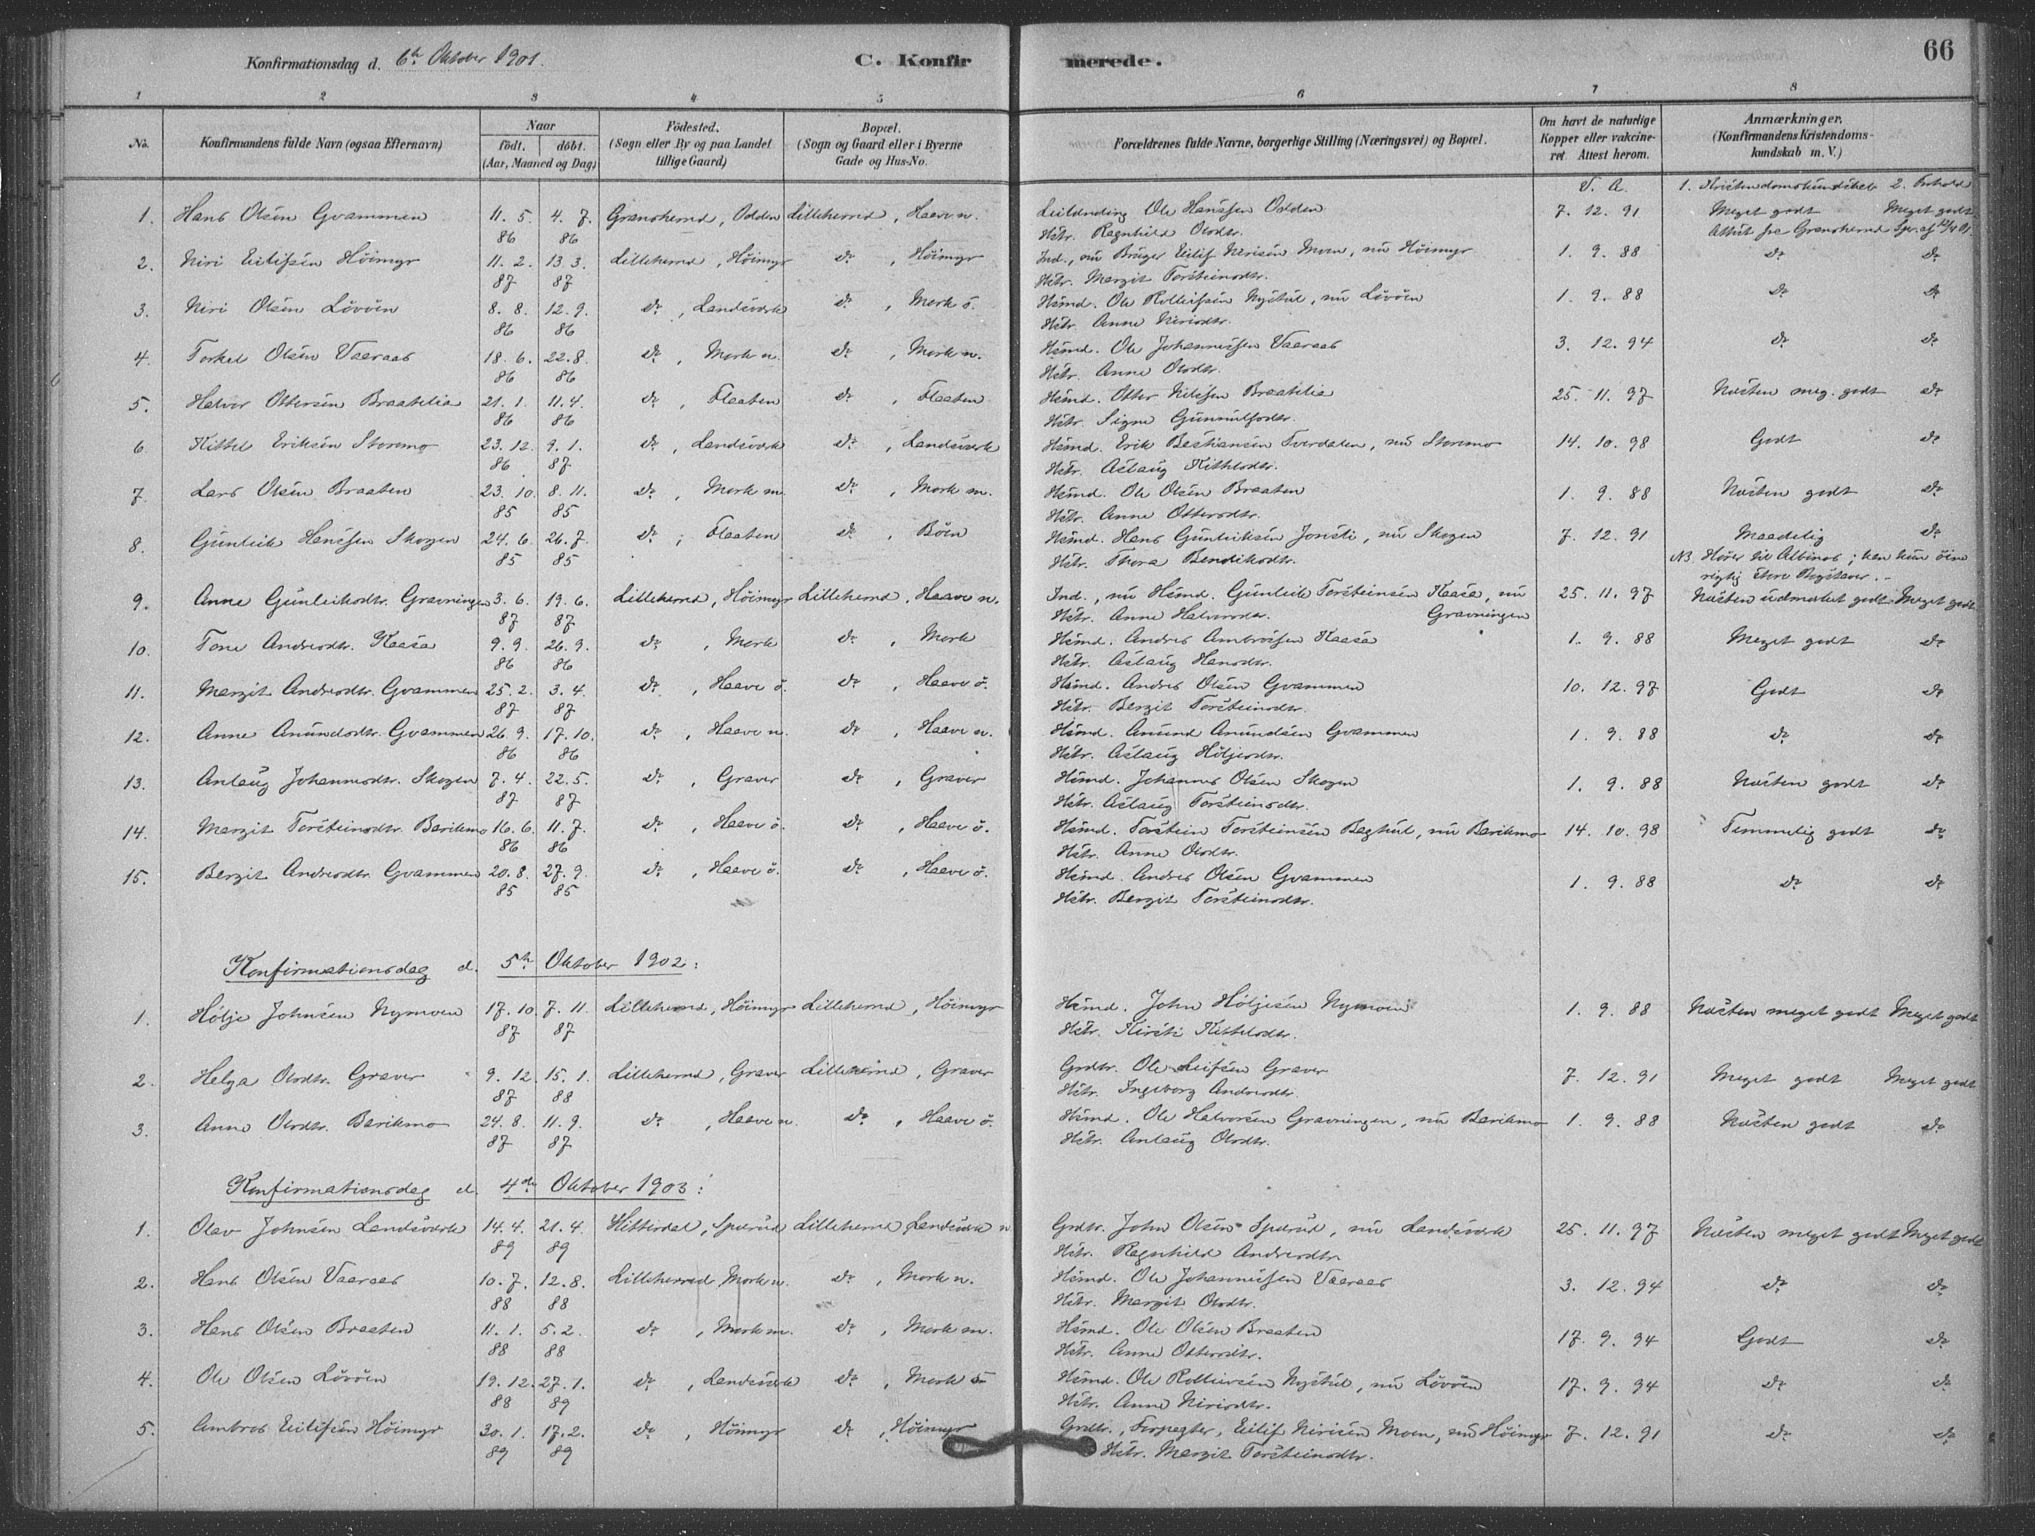 Konfirmationsdag d. 6te Oktober 1901. C. Konfirmerede. 66
1 2 3 4 5 6 7 8
No. Konfirmandens fulde Navn (ogsaa Efternavn) Naar født. døbt. (Aar, Maaned og Dag) Fødested. (Sogn eller By og paa Landet tillige Gaard) Bopæl. (Sogn og Gaard eller i Byerne Gade og Hus-No. Forældrenes fulde Navne, borgerlige Stilling (Næringsvei) og Bopæl. Om havt de naturlige Kopper eller vakcineret. Attest herom. Anmærkninger. (Konfirmandens Kristendomskundskab m. V.)
V. A. 1. Kristendomskundskab 2. Forhold
1. Hans Olsen Gvammen 11. 5. 86 4. 7. 86 Gransherred, Odden Lilleherred, Haave n. Leilænding Ole Hanssen Odden 7. 12. 91 Meget godt Meget godt
Hstr. Ragnhild Olsdtr. Attest fra Gransherred
2. Niri Eilifsen Høimyr 11. 2. 87 13. 3. 87 Lilleherred, Høimyr do, Høimyr Ind., nu Bruger Eilif Nirisen Moen, nu Høimyr 1. 9. 88 do do
Hstr. Margit Torsteinsdtr.
3. Niri Olsen Løvøen 8. 8. 86 12. 9. 86 do, Landsverk do, Mork ø. Hsmd. Ole Rolleifsen Nystul, nu Løvøen 1. 9. 88 do do
Hstr. Anne Nirisdtr.
4. Torkel Olsen Vaaraas 18. 6. 86 22. 8. 86 do, Mork n. do, Mork n. Hsmd. Ole Johannessen Vaaraas 3. 12. 94 do do
Hstr. Anne Olsdtr.
5. Halvor Ottersen Braatelia 21. 1. 86 11. 4. 86 do, Flaaten do, Flaaten Hsmd. Otter Nilssen Braatelia 25. 11. 97 Næsten meg. godt do
Hstr. Signe Gunnulfsdtr.
6 Kittel Eriksen Storemo 23. 12. 86 9. 1. 87 do, Landsverk do, Landsverk Hsmd. Erik Bestiansen Tverdalen, nu Storemo 14. 10. 98 Godt do
Hstr. Aslaug Kittelsdtr.
7. Lars Olsen Braaten 23. 10. 85 8. 11. 85 do, Mork m. do, Mork m. Hsmd. Ole Olsen Braaten 1. 9. 88 Næsten godt do
Hstr. Anne Ottersdtr.
8. Gunleik Hanssen Skogen 24. 6. 85 26. 7. 85 do, Flaaten do, Bøen Hsmd. Hans Gunleiksen Jonsli, nu Skogen 7. 12. 91 Maadelig do
Hstr. Thora Bendiksdtr. NB. Hører til Albinos; kan kun øine
rigtig store Bogstaver. -
9. Anne Gunleiksdtr. Gravningen 3. 6. 87 19. 6. 87 Lilleherred, Høimyr Lilleherred, Haave n. Ind., nu Hsmd. Gunleik Torsteinsen Kaasa, nu Gravningen 25. 11. 97 Næsten udmærket godt Meget godt
Hstr. Anne Halvorsdtr.
10. Tone Andresdtr. Kaasa 9. 9. 86 26. 9. 86 do, Mork do, Mork Hsmd. Andres Ambrossen Kaasa 1. 9. 88 Meget godt do
Hstr. Aslaug Hansdtr.
11. Margit Andresdtr. Gvammen 25. 2. 87 3. 4. 87 do, Haave ø. do, Haave ø. Hsmd. Andres Olsen Gvammen 10. 12. 97 Godt do
Hstr. Bergit Torsteinsdtr.
12. Anne Anundsdtr. Gvammen 26. 9. 86 17. 10. 86 do, Haave n. do, Haave n. Hsmd. Anund Anundsen Gvammen 1. 9. 88 do do
Hstr. Aslaug Høljesdtr.
13. Anlaug Johannesdtr. Skogen 7. 4. 87 22. 5. 87 do, Graver do, Graver Hsmd. Johannes Olsen Skogen 1. 9. 88 Næsten godt do
Hstr. Aslaug Torsteinsdtr.
14. Margit Torsteinsdtr. Barikmo 16. 6. 86 11. 7. 86 do, Haave ø. do, Haave ø. Hsmd. Torstein Torsteinsen Baghul, nu Barikmo 14. 10. 98 Temmelig godt do
Hstr. Anne Olsdtr.
15. Bergit Andresdtr. Gvammen 20. 8. 85 27. 9. 85 do, Haave ø. do, Haave ø. Hsmd. Andres Olsen Gvammen 1. 9. 88 do do
Hstr. Bergit Torsteinsdtr.
Konfirmationsdag d. 5te Oktober 1902:
1. Hølje Johnsen Nymoen 17. 10. 87 7. 11. 87 Lilleherred, Høimyr Lilleherred, Høimyr Hsmd. John Høljesen Nymoen 1. 9. 88 Næsten meget godt Meget godt
Hstr. Kirsti Kittelsdtr.
2. Helga Olsdtr. Graver 9. 12. 87 15. 1. 88 Lilleherred, Graver Lilleherred, Graver Grdbr. Ole Leifsen Graver 7. 12. 91 Meget godt Meget godt
Hstr. Ingeborg Andresdtr.
3. Anne Olsdtr. Barikmo 24. 8. 87 11. 9. 87 do, Haave n. do, Haave ø. Hsmd. Ole Halvorsen Gravningen, nu Barikmo 1. 9. 88 Næsten godt do
Hstr. Anlaug Olsdtr.
Konfirmationsdag d. 4de Oktober 1903:
1. Olav Johnsen Landsverk 14. 4. 89 21. 4. 89 Hitterdal, Sperud Lilleherred, Landsverk n. Grdbr. John Olsen Sperud, nu Landsverk 25. 11. 97 Næsten meget godt Meget godt
Hstr. Ragnhild Andresdtr.
2. Hans Olsen Vaaraas 10. 7. 88 12. 8. 88 Lilleherred, Mork n. do, Mork n. Hsmd. Ole Johannessen Vaaraas 3. 12. 94 do do
Hstr. Margit Olsdtr.
3. Hans Olsen Braaten 11. 1. 88 5. 2. 88 do, Mork m. do, Mork m. Hsmd. Ole Olsen Braaten 17. 9. 94 Godt do
Hstr. Anne Ottersdtr.
4. Ole Olsen Løvøen 19. 12. 88 27. 1. 89 do, Landsverk do, Mork ø Hsmd. Ole Rolleivsen Nystul, nu Løvøen 17. 9. 94 do do
Hstr. Anne Nirisdtr.
5. Ambros Eilifsen Høimyr 30. 1. 89 17. 2. 89 do, Høimyr do, Høimyr Grdbr., Forpagter, Eilif Nirisen Moen, nu Høimyr 7. 12. 91 do do
Hstr. Margit Torsteinsdtr.